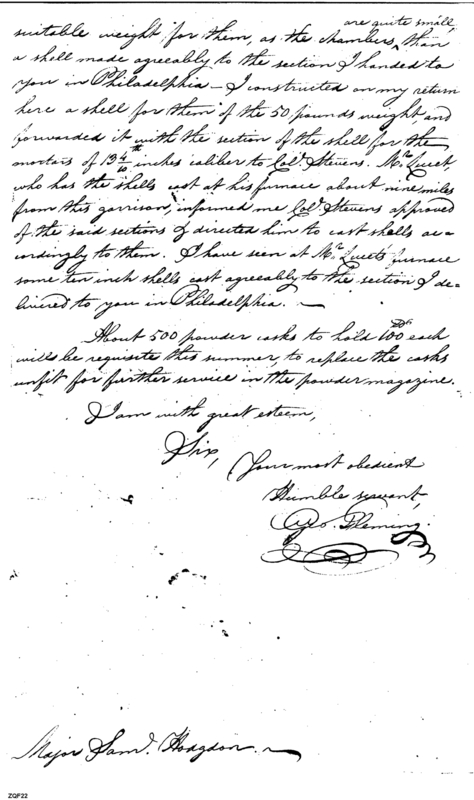 are quite small,
suitable weight for them, as the chambers ^ than
a shell made agreeably to the section I handed to
you in Philadelphia — I constructed on my return
here a shell for them of the 50 pounds weight and
forwarded it with the section of the shell for the
mortars of 13 4/10th inches caliber to Colo. Stevens. Mr.
who has the shells cast at his furnace about nine miles
from this garrison, informed me Colo. Stevens approved
of the said sections & directed him to cast shells ac=
cordingly to them. I have seen at Mr. furnace
some ten inch shells cast agreeably to the section I de-
livered to you in Philadelphia. —
About 500 powder casks to hold 100 each
will be requisite this summer, to replace the casks
unfit for further service in the powder magazine.
I am with great esteem,
Sir,
Your most obedient
Humble servant,
Geo. Fleming.
Major Saml. Hodgdon. —
ZQF22